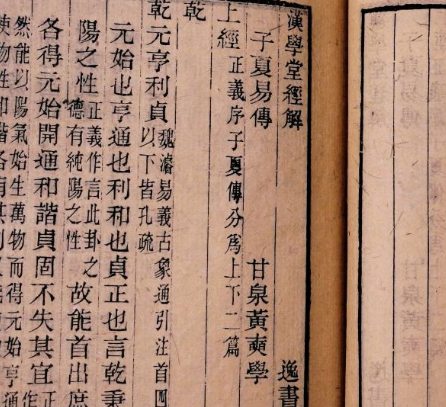 漢學堂經解 逸書
子夏易傳 甘泉黃奭學
上經 正義序子夏傳分爲上下二篇
乾
乾元亨利貞 魏濬易義古象通引注首四
以下皆孔疏
元始也亨通也利和也貞正也言乾秉
陽之性 正義作言此卦之
德有純陽之性 故能首出庶
各得元始開通和諧貞固不失其宜 正
然能以陽氣始生萬物而得元始亨通
使物性和諧各有其利